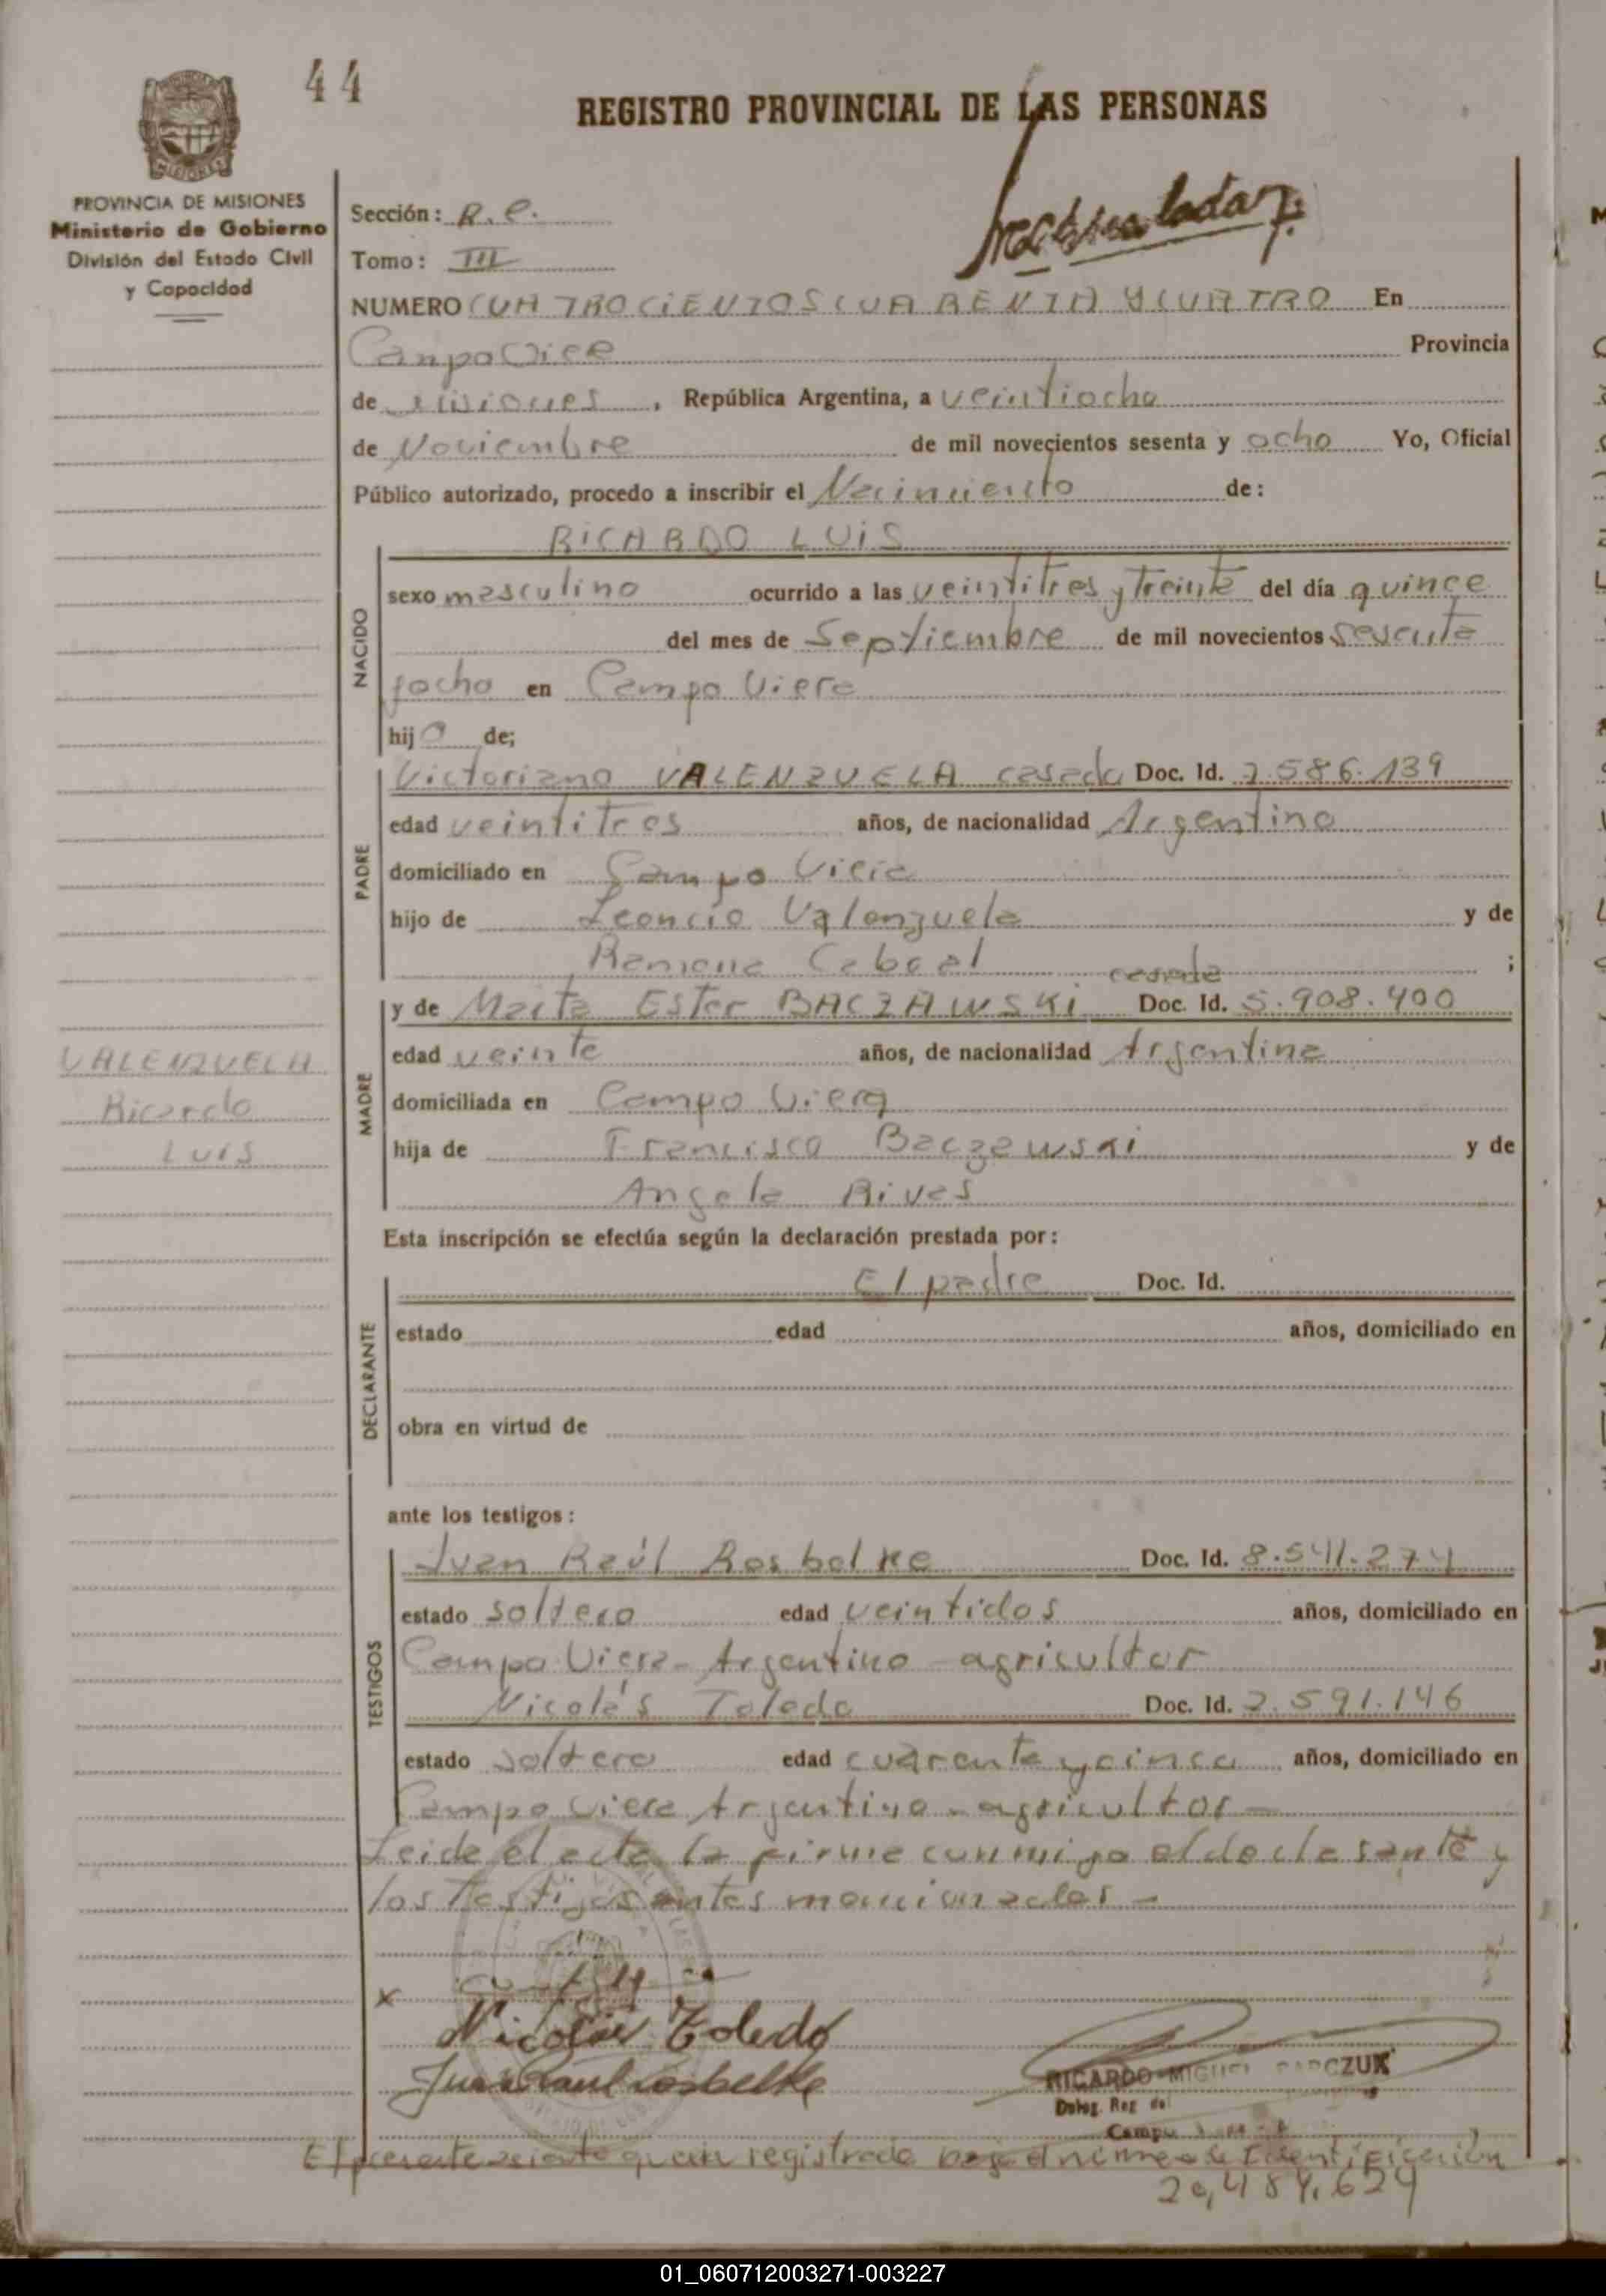 44
REGISTRO PROVINCIAL DE LAS PERSONAS
PROVINCIA DE MISIONES
Ministerio de Gobierno
División del Estado Civil
y Capacidad
Sección: R. C.
Tomo: III
NUMERO CUATROCIENTOS CUARENTA Y CUATRO En
Campo Viera Provincia
de Misiones, República Argentina, a veintiocho
de Noviembre de mil novecientos sesenta y ocho Yo, Oficial
Público autorizado, procedo a inscribir el Nacimiento de:
RICARDO LUIS
NACIDO
sexo masculino ocurrido a las veintitres y treinta del día quince
del mes de Septiembre de mil novecientos sesenta
yocho en Campo Viera
hijo de;
PADRE
Victoriano VALENZUELA casado Doc. Id. 7.586.139
edad veintitres años, de nacionalidad Argentino
domiciliado en Campo Viera
hijo de Leoncio Valenzuela y de
Ramona Cabral ;
casada
MADRE
y de Marta Ester BACZAWSKI Doc. Id. 5.908.400
edad veinte años, de nacionalidad Argentina
domiciliada en Campo Viera
hija de Francisco Baczewski y de
Angela Rivas
VALENZUELA
Ricardo
LUIS
Esta inscripción se efectúa según la declaración prestada por:
DECLARANTE
El padre Doc. Id.
estado edad años, domiciliado en
obra en virtud de
ante los testigos:
TESTIGOS
Juan Raúl Rosbelke Doc. Id. 8.541.274
estado soltero edad veintidos años, domiciliado en
Campo Viera - Argentino - agricultor
Nicolás Toledo Doc. Id. 2.591.146
estado soltero edad cuarenta y cinco años, domiciliado en
Campo Viera Argentino - agricultor -
Leida el acta la firma conmigo el declarante y
los testigos antes mencionados -
x
Nicolás Toledo
Juan Raul Rosbelke
RICARDO MIGUEL
Deleg. Reg. del
Campo
El presente asiento queda registrado bajo el numero de Identificación
20,484.624
01_060712003271-003227